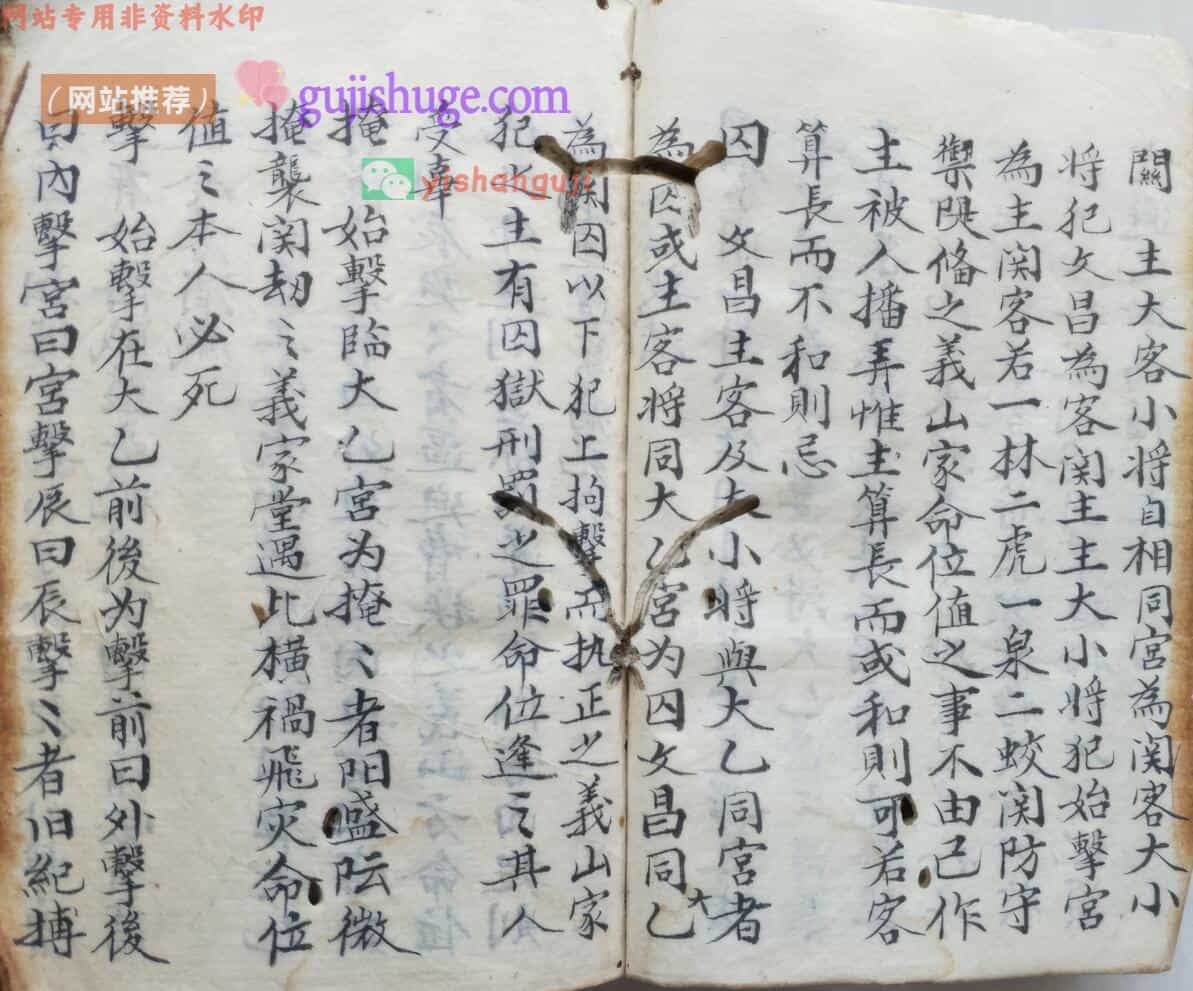 网站专用非资料水印
(网站推荐)
gujishuge.com
yishanguji
關 主大客小将自相同宮為関客大小
将犯文昌為客関主主大小将犯始擊宮
為主関客若一林二虎一泉二蛟関防守
禦隄俻之義山家命位值之事不由己作
主被人播弄惟主算長而或和則可若客
算長而不和則忌
囚 文昌主客及大小将與大乙同宮者
為囚或主客将同大乙宮为囚文昌同大乙
為関囚以下犯上拘擊而执正之義山家
犯之主有囚獄刑罰之罪命位逢之其人
受辜
掩 始擊臨大乙宮为掩〻者阳盛阮微
掩襲関刼之義家堂遇比橫禍飛灾命位
值之本人必死
擊 始擊在大乙前後为擊前曰外擊後
曰內擊宮曰宮擊辰曰辰擊〻者旧紀搏